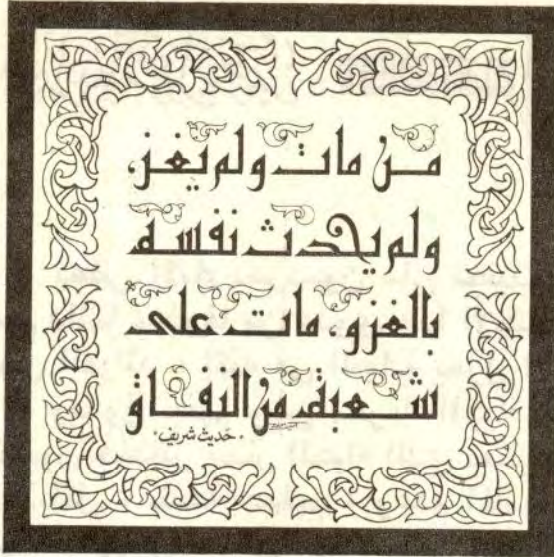 من مات ولم يغز،
ولم يحدث نفسه
بالغزو، مات على
شعبة من النفاق
حديث شريف